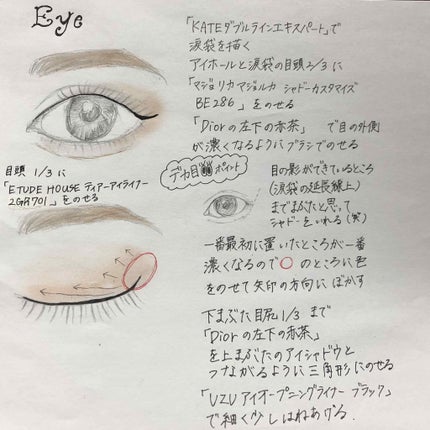 Eye
「KATEダブルラインエキスパート」で
涙袋を描く
アイホールと涙袋の目頭2/3に
「マジョリカマジョルカ シャドーカスタマイズ
BE286 」をのせる
「Diorの左下の赤茶」で目の外側
が濃くなるようにブラシでのせる
目頭 1/3 に
「ETUDE HOUSE ティアーアイライナー
2GR701」をのせる
デカ目ポイント
目の影ができているところ
(涙袋の延長線上)
までまぶたと思って
シャドーをいれる(笑)
一番最初に置いたところが一番
濃くなるので○のところに色
をのせて矢印の方向にぼかす
下まぶた目尻1/3 まで
「Diorの左下の赤茶」
を上まぶたのアイシャドウと
つながるように三角形にのせる
「UZU アイオープニングライナー ブラック」
で細く少しはねあげる.